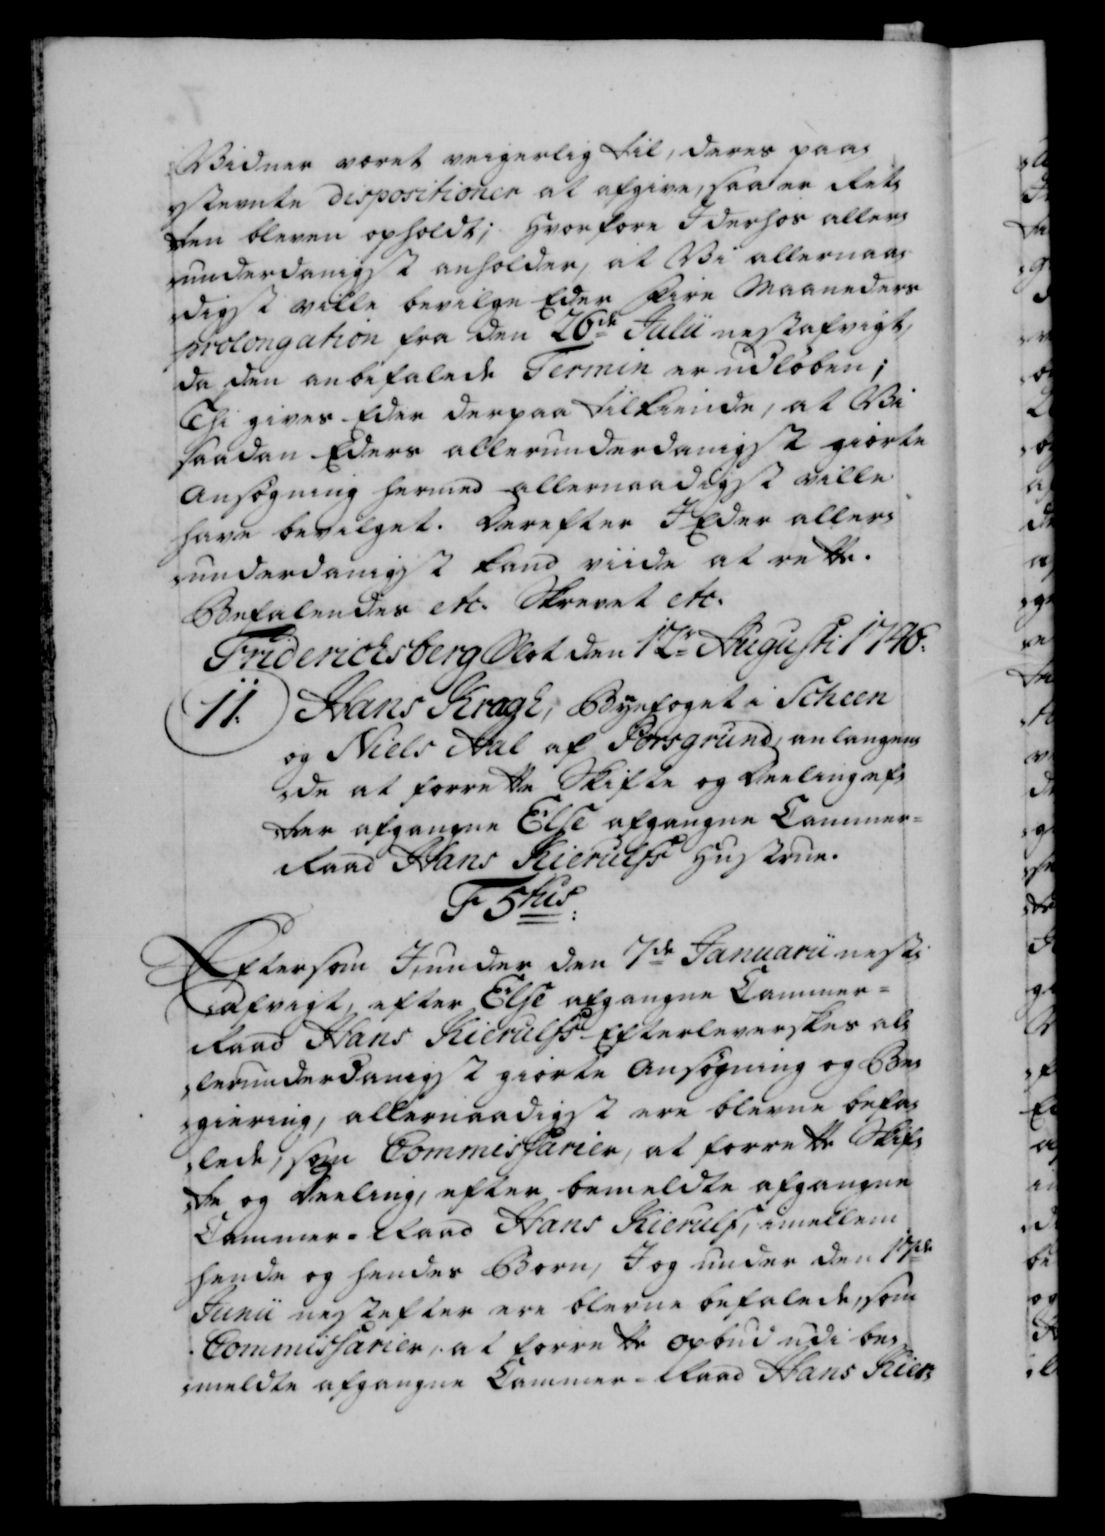 Vidner været veigerlig til, deres paa-
stevnte dispositioner at afgive, saa er Ret-
ten bleven opholdt; Hvorfore I derhos aller-
underdanigst anholder, at Vi allernaa-
digst ville bevilge Eder fire Maaneders
prolongation fra den 26de Julii nestafvigt,
da den anbefalede Termin er udløben;
Thi gives Eder derpaa tilkiende, at Vi
saadan Eders allerunderdanigst giorte
Ansøgning hermed allernaadigst ville
have bevilget. Derefter I Eder aller-
underdanigst kand viide at rette.
Befalendes etc. Skrevet etc.
Fridericksberg Slot den 12te Augusti 1746.
11. Hans Kragh, Byefoget i Scheen
og Niels Aal af Porsgrund, anlangen-
de at forrette Skifte og Deeling ef-
ter afgangne Else afgangne Cammer-
Raad Hans Kierulfs Hustrue.
F 5tus.
Eftersom I, under den 7de Januarii nest-
afvigt, efter Else afgangne Cammer-
Raad Hans Kierulfs Efterleverskes al-
lerunderdanigst giorte Ansøgning og Be-
giering, allernaadigst ere blevne befa-
lede, som Commissarier, at forrette Skif-
te og Deeling, efter bemeldte afgangne
Cammer-Raad Hans Kierulf, imellem
hende og hendes Børn, I og under den 17de
Junii nestefter ere blevne befalede, som
Commissarier, at forrette opbud udi be-
meldte afgangne Cammer-Raad Hans Kier-